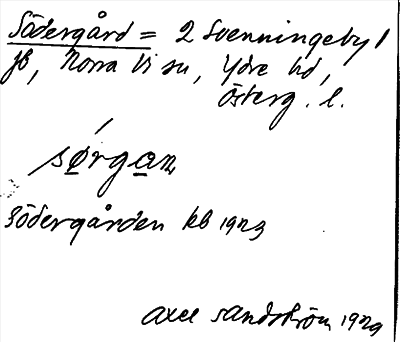 Södergård = 2 Svenningeby 1
jb, Norra Vi sn, Ydre hd,
Österg. l.
sørgan,
Södergården kb 1923
Axel Sandström 1929